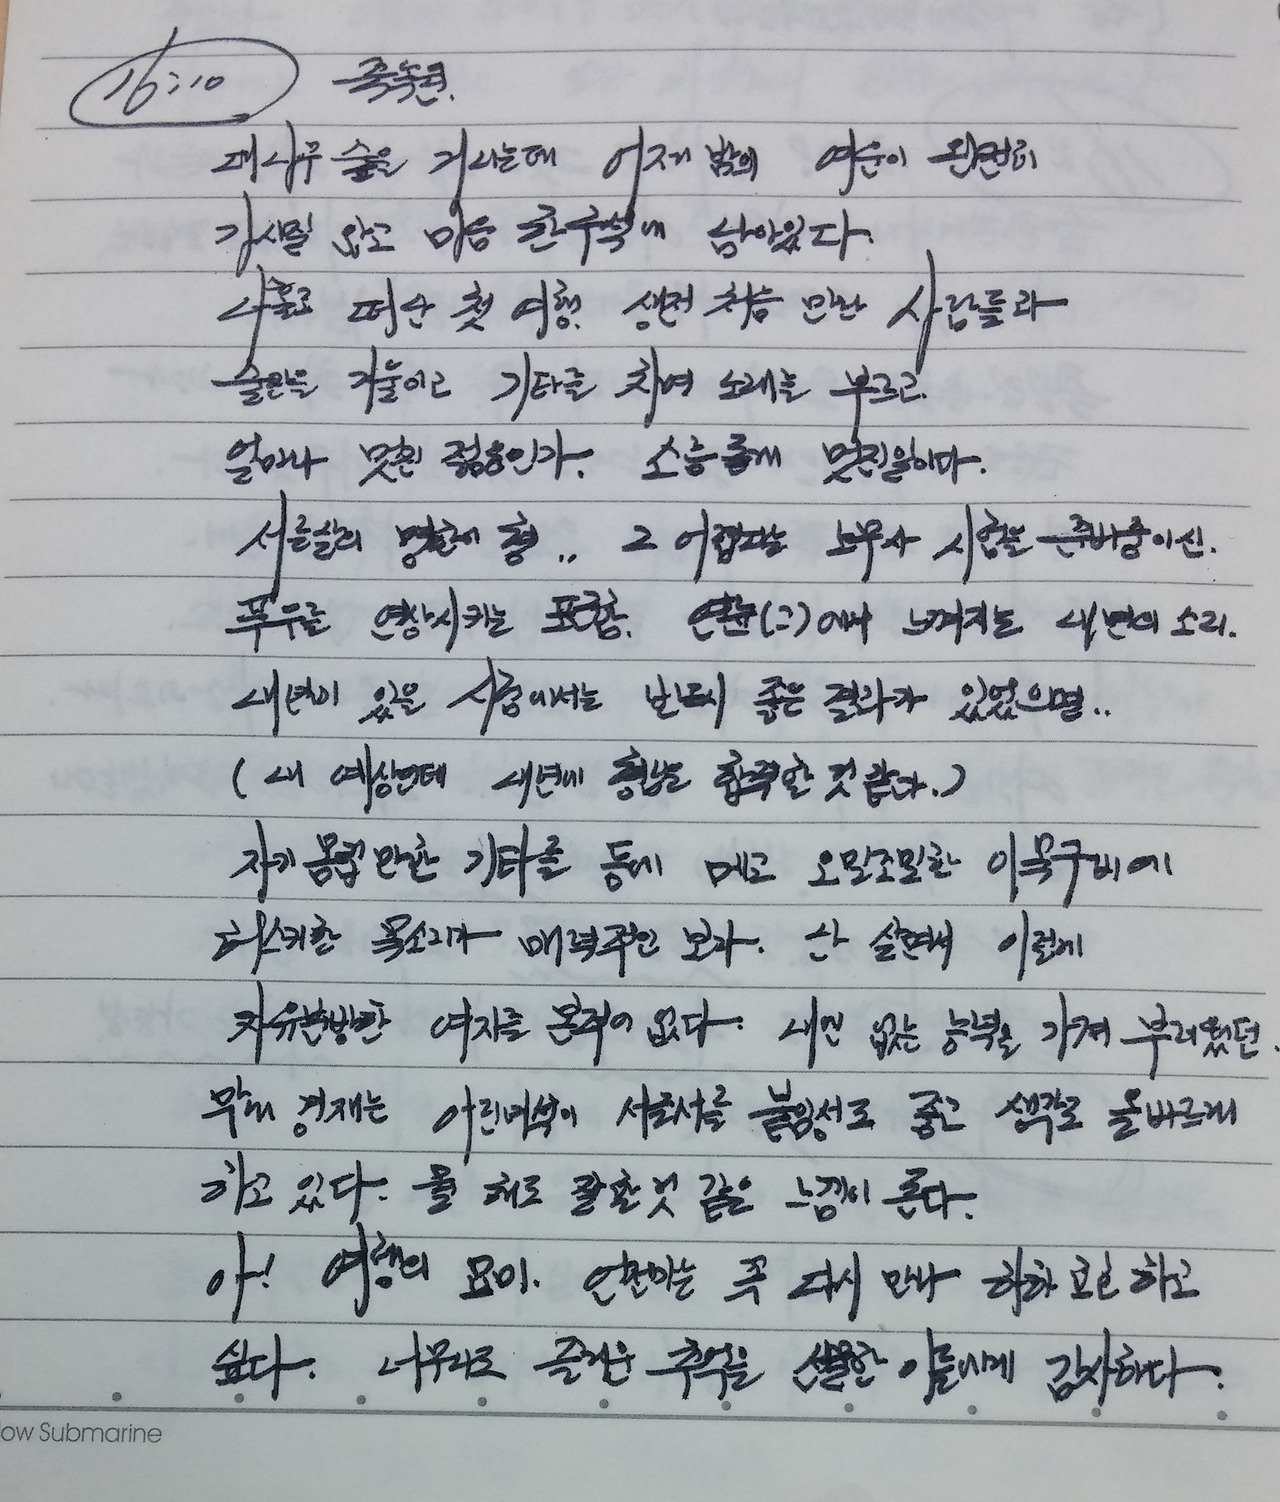 16:10 죽녹원.
대나무 숲을 거니는데 어제 밤의 여운이 완전히
가시질 않고 마음 한구석에 남아있다.
나홀로 떠난 첫 여행. 생전 처음 만난 사람들과
술잔을 기울이고 기타를 치며 노래를 부르고.
얼마나 멋진 젊음인가. 소름돋게 멋진일이다.
서른살의 명환이 형.. 그 어렵다는 노무사 시험을 준비중이신.
푸우를 연상시키는 포근함. 연륜(?)에서 느껴지는 내면의 소리.
내년에 있을 시험에서는 반드시 좋은 결과가 있었으면..
( 내 예상인데 내년에 형님은 합격할 것 같다.)
자기 몸집만한 기타를 등에 메고 오밀조밀한 이목구비에
허스키한 목소리가 매력적인 보라. 난 살면서 이렇게
자유분방한 여자를 본적이 없다. 내겐 없는 능력을 가져 부러웠던.
막내 경재는 어린녀석이 서글서글 붙임성도 좋고 생각도 올바르게
하고 있다. 뭘 해도 잘할 것 같은 느낌이 든다.
아! 여행의 묘미. 언젠가는 꼭 다시 만나 하하호호 하고
싶다. 너무나도 즐거운 추억을 선물한 이들에게 감사하다.
low Submarine